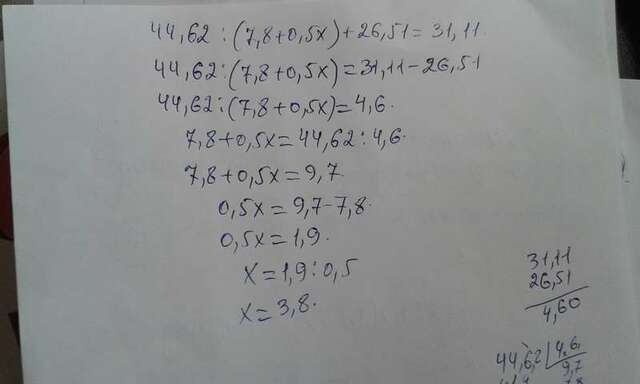 44,62:(7,8+0,5x)+26,51=31,11.
44,62:(7,8+0,5x)=31,11-26,51
44,62:(7,8+0,5x)=4,6.
7,8+0,5x=44,62:4,6.
7,8+0,5x=9,7.
0,5x=9,7-7,8.
0,5x=1,9.
x=1,9:0,5
x=3,8.
31,11
26,51
4,60
44,6,2 4,6,
9,7